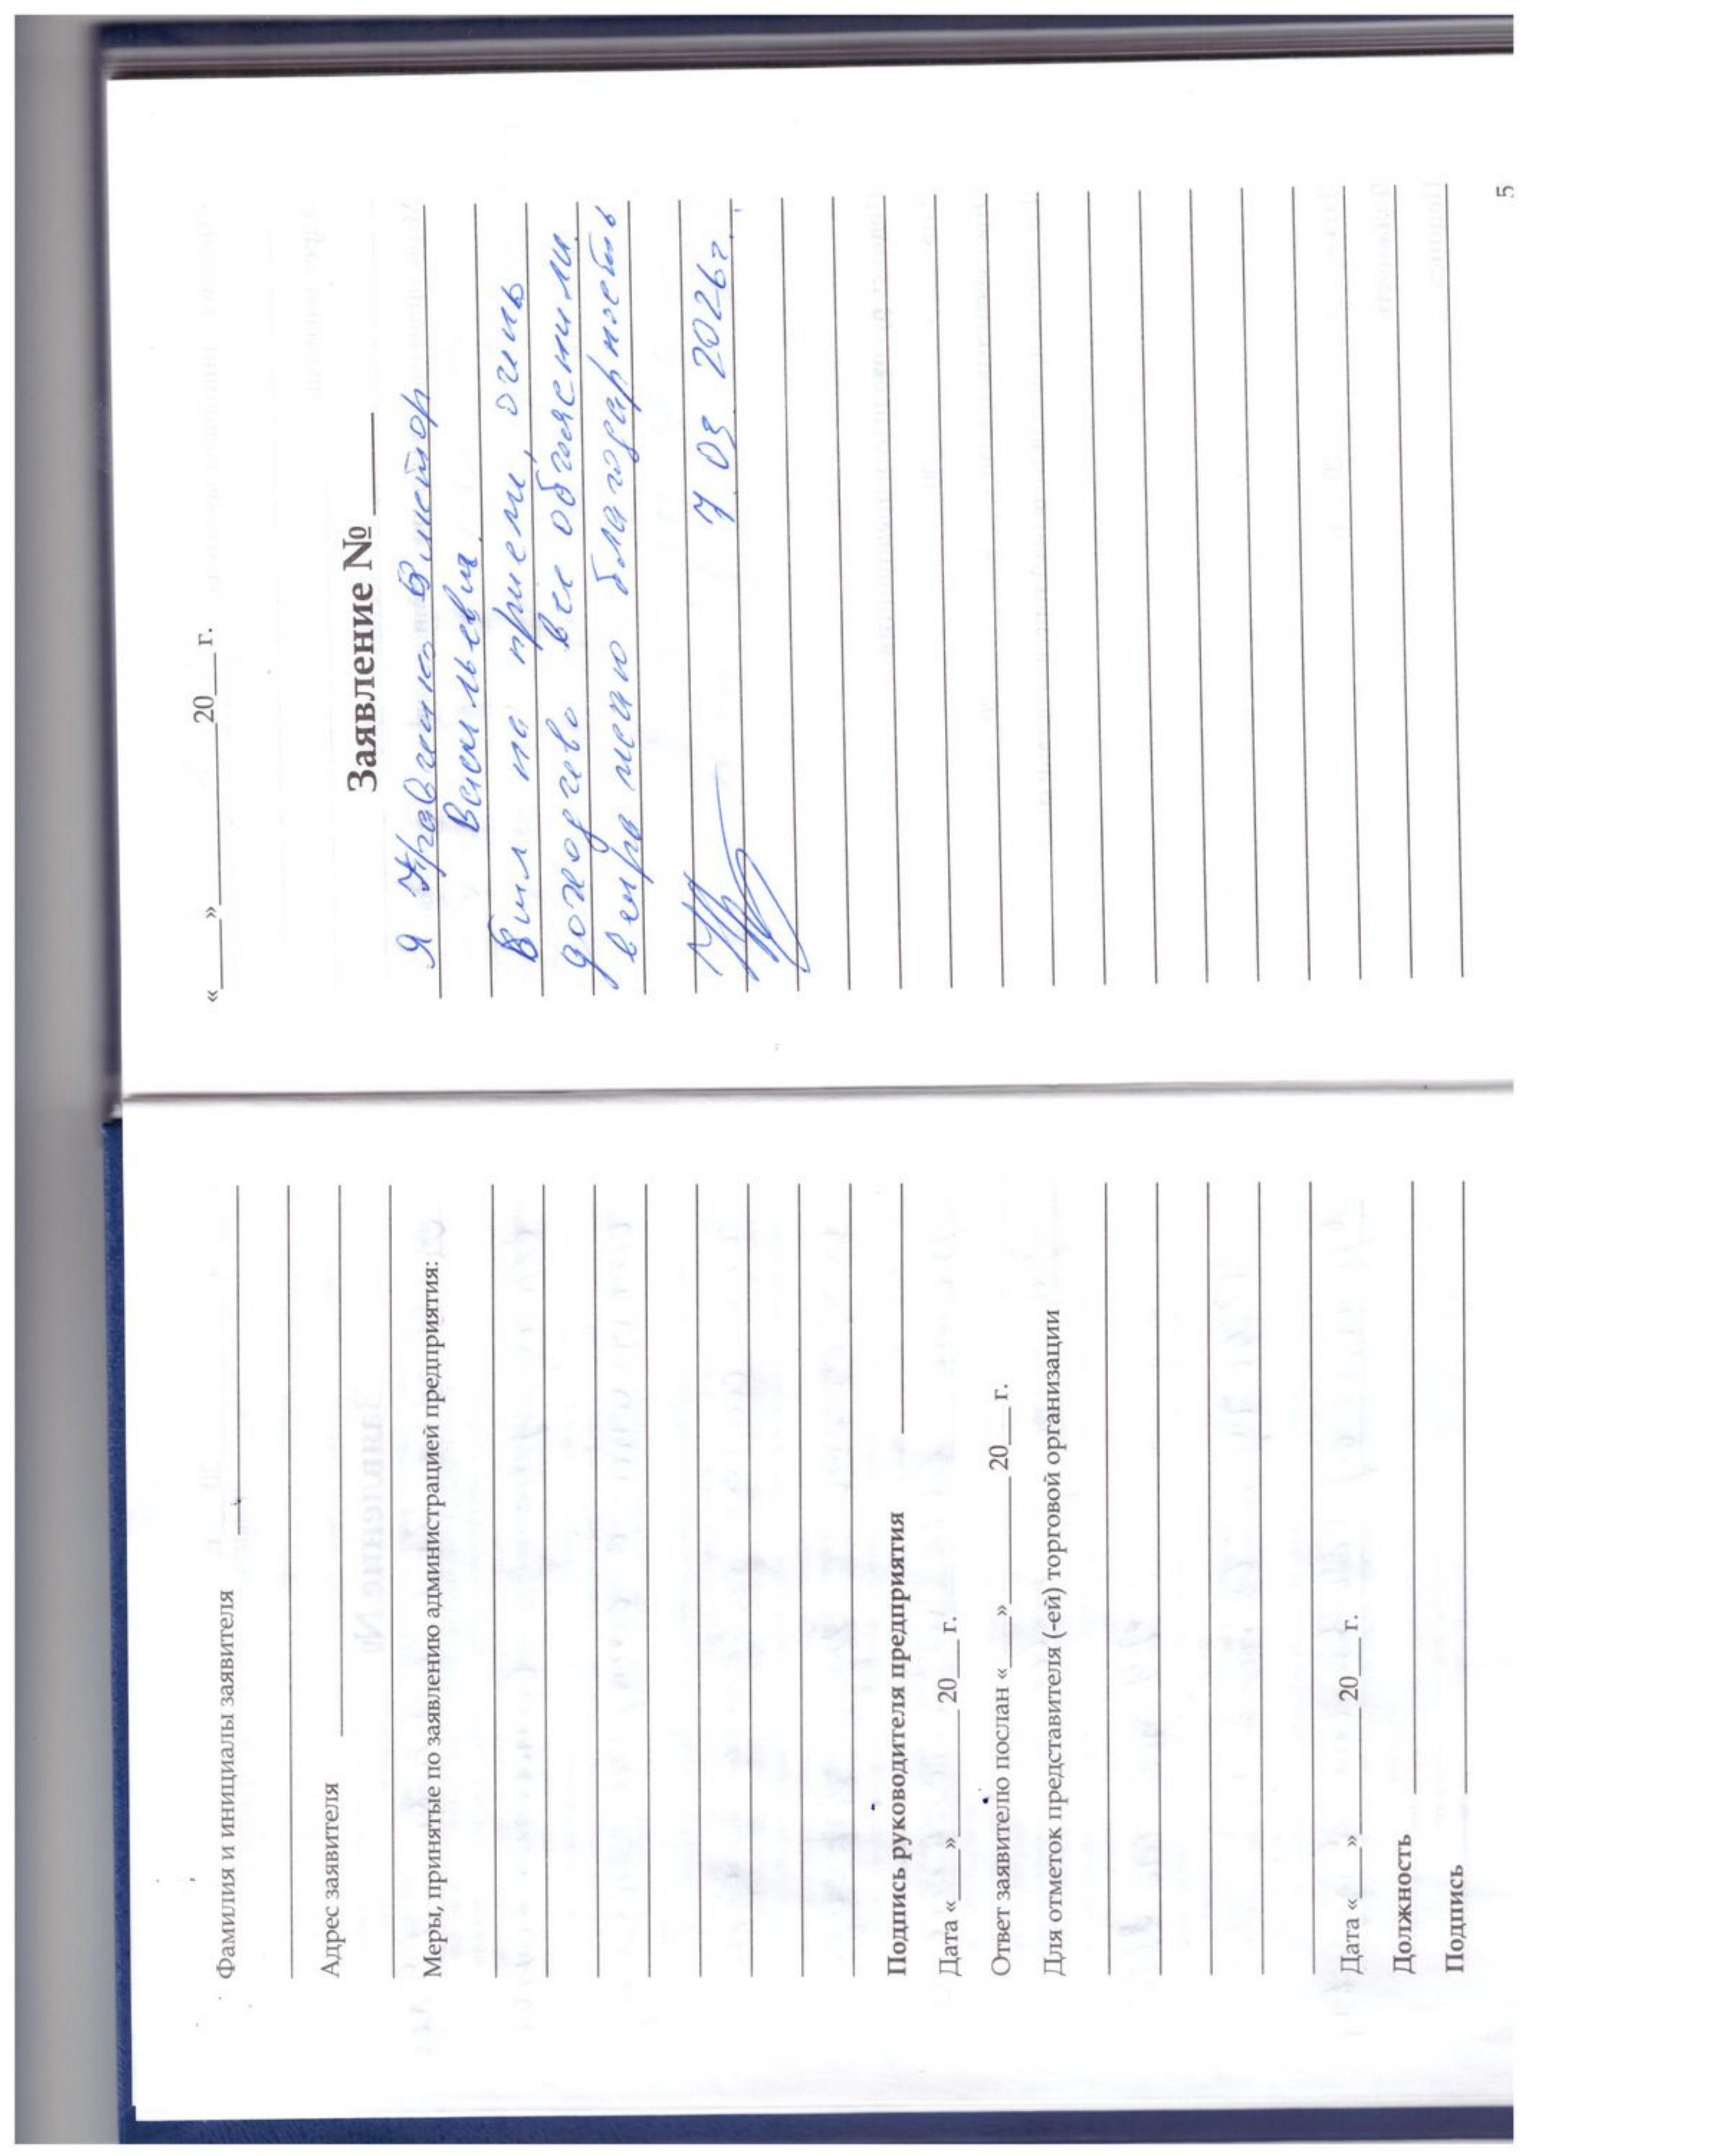 Фамилия и инициалы заявителя
Адрес заявителя
Меры, принятые по заявлению администрацией предприятия:
Подпись руководителя предприятия
Дата «___»________20__г.
Ответ заявителю послан «___»________20__г.
Для отметок представителя (-ей) торговой организации
Дата «___»________20__г.
Должность
Подпись
«___»________20__г.
Заявление №
Я Кравченко Виктор
Васильевич
Был на приеме, очень
доходчево все обьяснили.
выражаю благодарность
7 03 2026г.
5